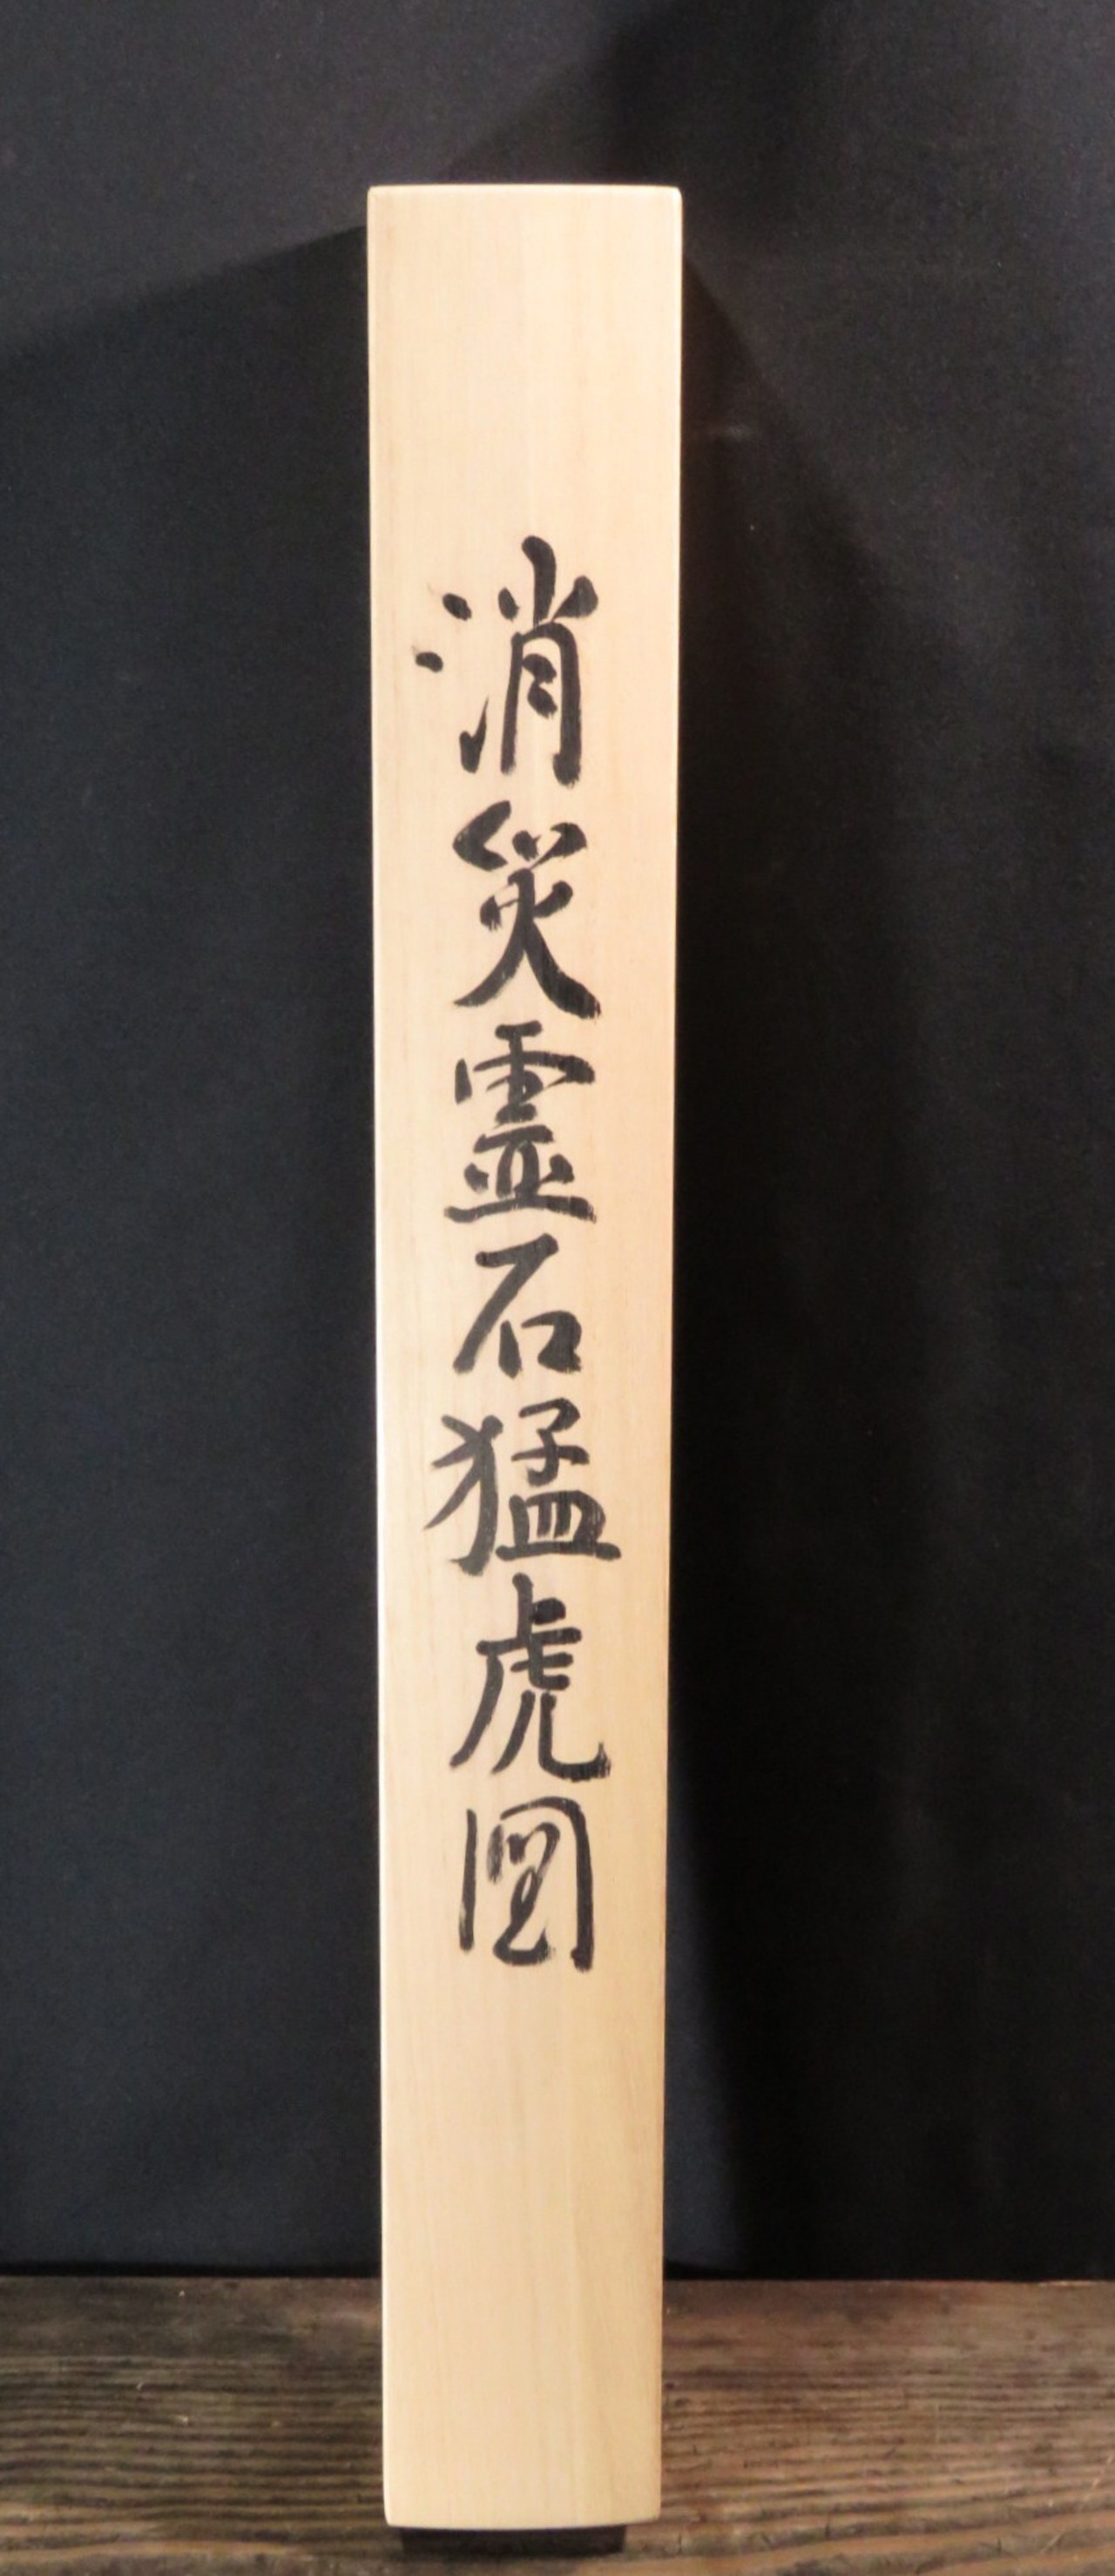 消災霊石猛虎図